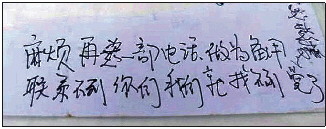 麻烦再想一部电话.做为备用
联系不到你们我们就找不到
宽了